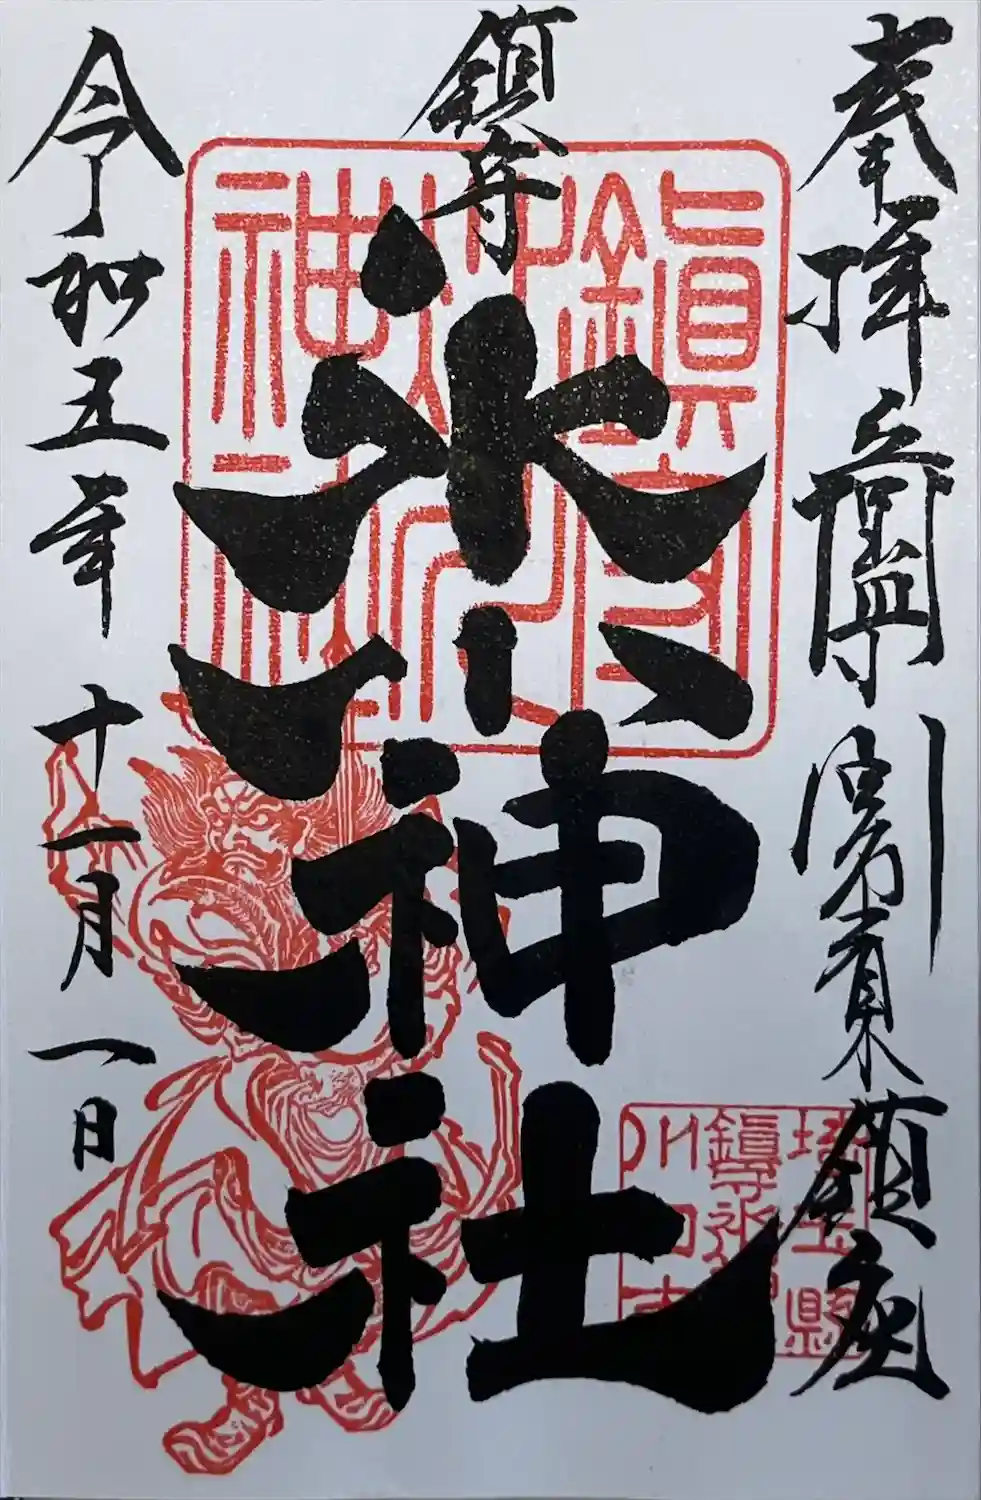 奉拝
青木鎮座
鎮守
氷川神社
令和五年十一月一日
鎮守
氷川
神社
埼玉縣
鎮守氷川
川口市